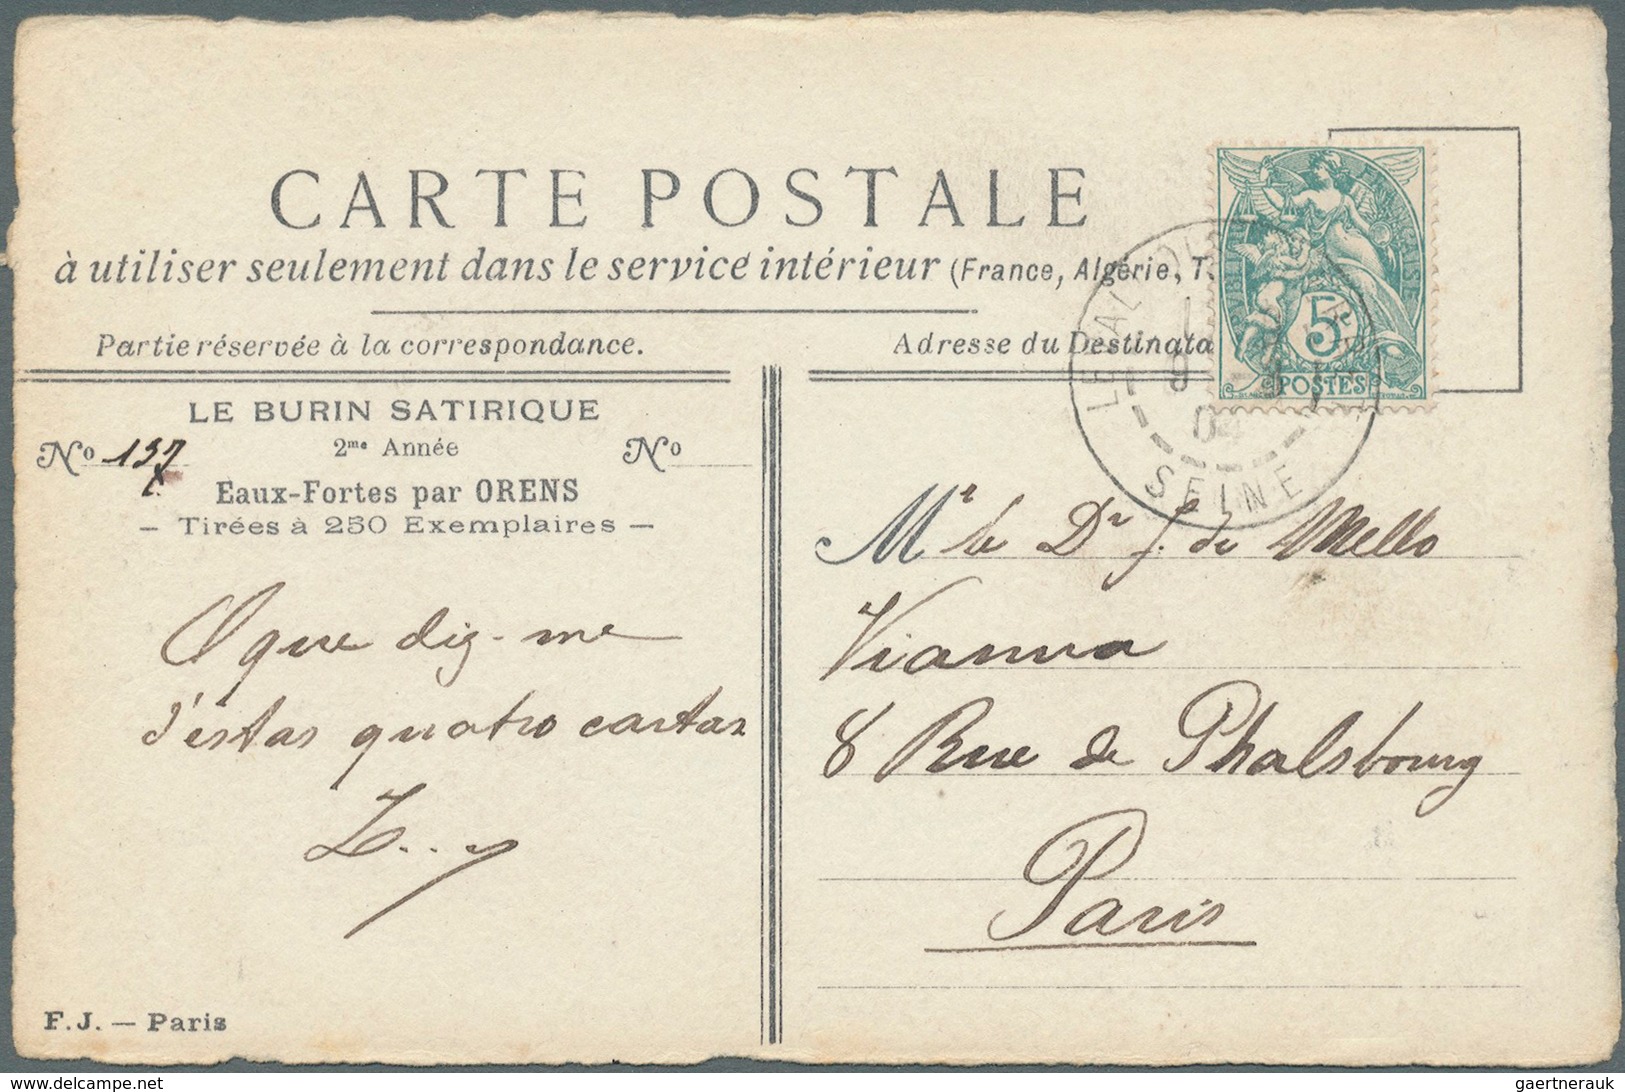 CARTE POSTALE
à utiliser seulement dans le service intérieur (France, Algérie, T
Partie réservée à la correspondance.
Adresse du Destinata
LE BURIN SATIRIQUE
2me Année
No 137
No
Eaux-Fortes par ORENS
— Tirées à 250 Exemplaires —
O que diz-me
d'estas quatro cartas
F.J. — Paris
RÉPUBLIQUE FRANÇAISE
5c
POSTES
04
SEINE
Mr le Dr J. de Mello
Vianna
8 Rue de Phalsbourg
Paris
gaertnerauk
delcampe.net